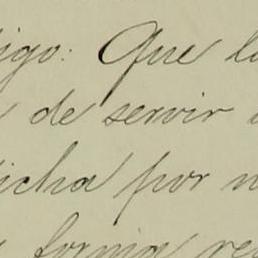 igo: Que l
de servir
icha por n
forma re